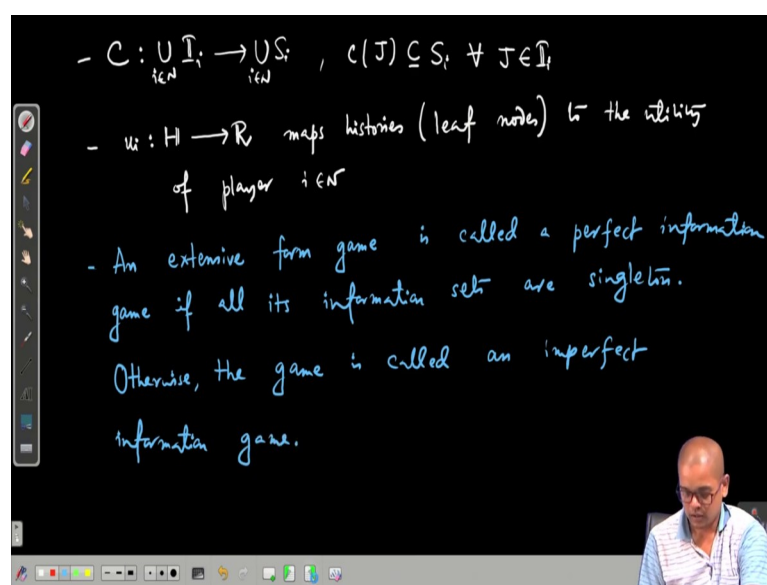 - C : ∪ 𝕀ᵢ → ∪ Sᵢ , c(J) ⊆ Sᵢ ∀ J ∈ 𝕀ᵢ
i∈N i∈N
- uᵢ : H → R maps histories (leaf nodes) to the utility
of player i ∈ N
- An extensive form game is called a perfect information
game if all its information sets are singleton.
Otherwise, the game is called an imperfect
information game.